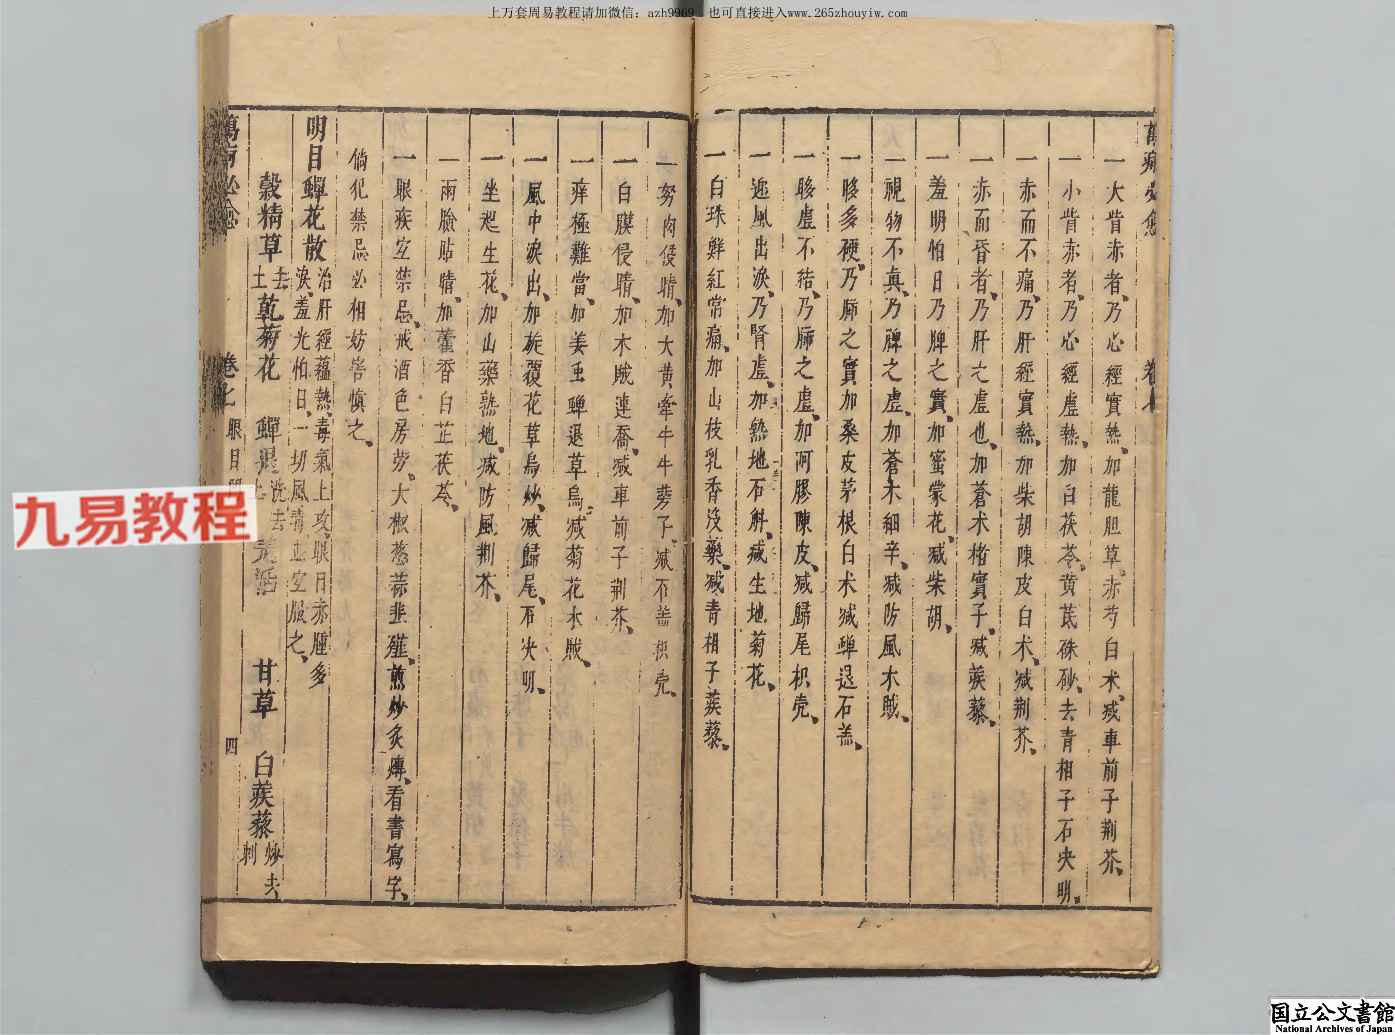 上万套周易教程请加微信：azh9969，也可直接进入www.265zhouyiw.com
一大眥赤者、乃心經實熱、加龍胆草、赤芍白术、减車前子荆芥、
一小眥赤者、乃心經虛熱、加白茯苓、黄芪硃砂、去青相子石决明、
一赤而不痛、乃肝經實熱、加柴胡陳皮白术、减荆芥、
一赤而昏者、乃肝之虛也、加蒼术楮實子、减蒺藜、
一羞明怕日、乃脾之實、加蜜蒙花、减柴胡、
一視物不真、乃脾之虛、加蒼术細辛、减防風木賊、
一眵多硬、乃肺之實、加桑皮茅根白术、减蟬退石羔、
一眵虛不結、乃肺之虛、加阿膠陳皮、减歸尾枳壳、
一迎風出淚、乃腎虛、加熟地石斛、减生地菊花、
一白珠鮮紅常痛、加山枝乳香没藥、减青相子蒺藜、
一努肉侵睛、加大黄牽牛牛蒡子、减石羔枳壳、
一白膜侵睛、加木賊連喬、减車前子荆芥、
一痒極難當、加姜虫蟬退草烏、减菊花木賊、
一風中淚出、加旋覆花草烏炒、减歸尾、石决明、
一坐起生花、加山藥熟地、减防風荆芥、
一兩臉貼睛、加藿香白芷茯苓、
一眼疾宜禁忌、戒酒色房劳、大椒葱蒜韭薤、煎炒炙煿、看書寫字、
倘犯禁忌、必相妨害慎之、
明目蟬花散 治肝經蘊熱、毒氣上攻、眼目赤腫多
淚、羞光怕日、一切風 宜服之、
穀精草 去土 乾菊花 蟬退 洗去 羌活 甘草 白蒺藜 炒去刺
卷七 眼目 四
九易教程
国立公文書館
National Archives of Japan